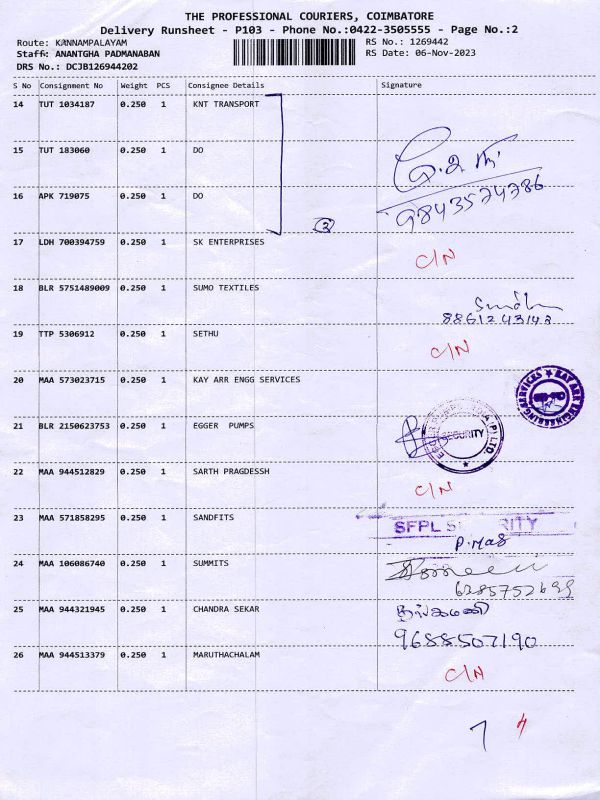 THE PROFESSIONAL COURIERS, COIMBATORE
Delivery Runsheet - P103 - Phone No.:0422-3505555 - Page No.:2
Route: KANNAMPALAYAM RS No.: 1269442
Staff: ANANTGHA PADMANABAN RS Date: 06-Nov-2023
DRS No.: DCJB126944202
S No Consignment No Weight PCS Consignee Details Signature
14 TUT 1034187 0.250 1 KNT TRANSPORT
15 TUT 183060 0.250 1 DO
16 APK 719075 0.250 1 DO
9843574786
3
17 LDH 700394759 0.250 1 SK ENTERPRISES C/N
18 BLR 5751489009 0.250 1 SUMO TEXTILES
8861243143
19 TTP 5306912 0.250 1 SETHU C/N
20 MAA 573023715 0.250 1 KAY ARR ENGG SERVICES KAY ARR ENGINEERING SERVICES
21 BLR 2150623753 0.250 1 EGGER PUMPS SECURITY
22 MAA 944512829 0.250 1 SARTH PRAGDESSH C/N
23 MAA 571858295 0.250 1 SANDFITS SFPL SECURITY
24 MAA 106086740 0.250 1 SUMMITS
25 MAA 944321945 0.250 1 CHANDRA SEKAR தங்கமணி
9688507190
26 MAA 944513379 0.250 1 MARUTHACHALAM C/N
7 4